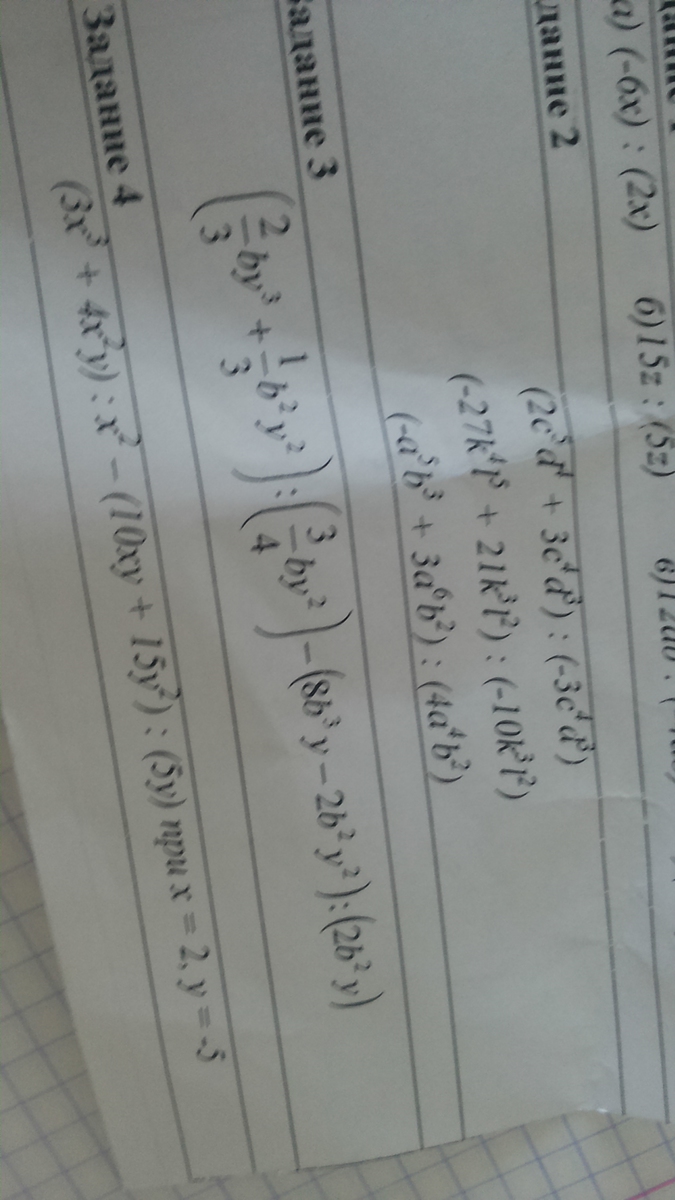 а) (-6x) : (2x) б) 15z : (5z)
(2c⁵d⁴ + 3c⁴d³) : (-3c⁴d³)
(-27k⁴l⁵ + 21k³l²) : (-10k³l²)
(-a⁵b³ + 3a⁶b²) : (4a⁴b²)
Задание 3
(2/3 by³ + 1/3 b²y²) : (3/4 by²) – (8b³y – 2b²y²) : (2b²y)
Задание 4
(3x³ + 4x²y) : x² – (10xy + 15y²) : (5y) при x = 2, y = -5